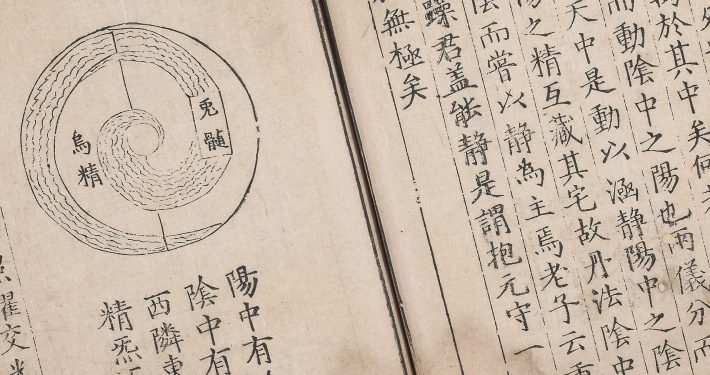 於其中矣何
而動陰中之陽也兩儀分而
天中是動以涵静陽中之陰
之精互藏其宅故丹法陰中
陰而嘗以静為主焉老子云
躁君盖能静是謂抱元守一
無極矣
兎髓
烏精
陽中有
陰中有
西隣東
精炁
耀交